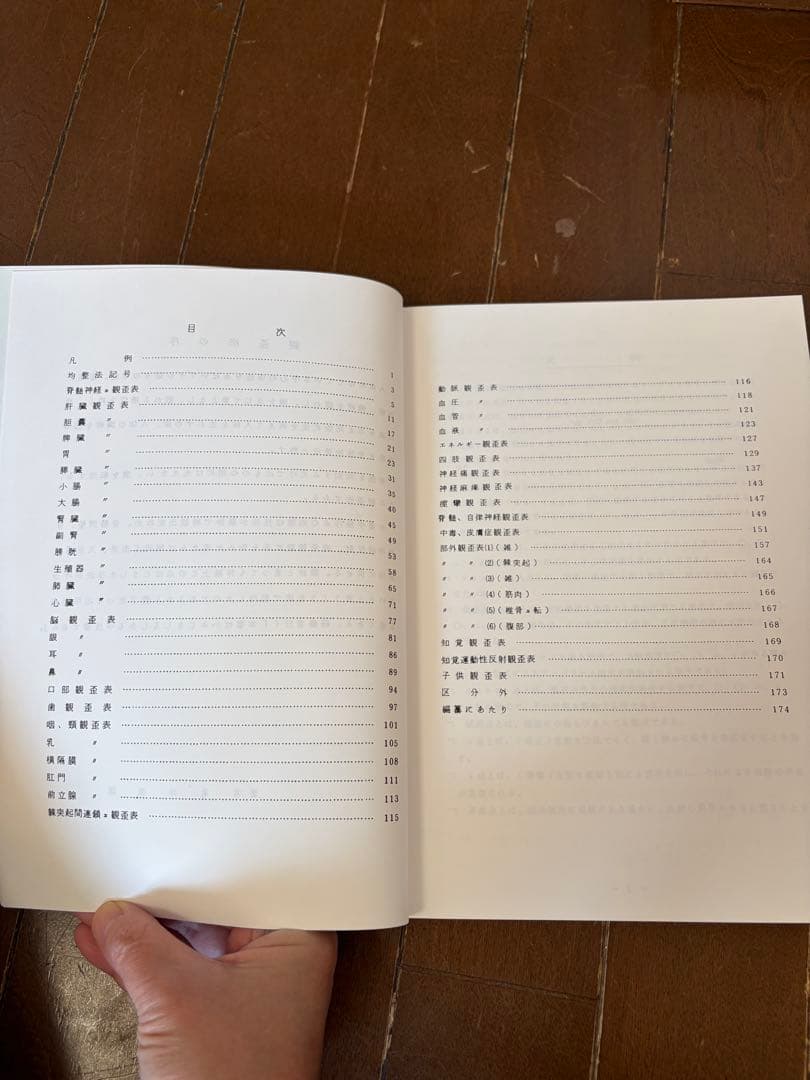 目 次
凡 例
均整法記号 1
脊髄神経〃観歪表 3
肝臓観歪表 5
胆嚢 〃 11
脾臓 〃 17
胃 〃 21
膵臓 〃 23
小腸 〃 31
大腸 〃 35
腎臓 〃 40
副腎 〃 45
膀胱 〃 49
生殖器 〃 53
肺臓 〃 58
心臓 〃 65
脳観歪表 71
眼 〃 77
耳 〃 81
鼻 〃 86
口部観歪表 89
歯観歪表 94
咽、頸観歪表 97
乳 〃 101
横隔膜 〃 105
肛門 〃 108
前立腺 〃 111
棘突起間連鎖〃観歪表 113
115
動脈観歪表 116
血圧 〃 118
血管 〃 121
血液 〃 123
エネルギー観歪表 127
四肢観歪表 129
神経痛観歪表 137
神経麻痺観歪表 143
痙攣観歪表 147
脊髄、自律神経観歪表 149
中毒、皮膚症観歪表 151
部外観歪表(1)(雑) 157
〃 〃 (2)(棘突起) 164
〃 〃 (3)(雑) 165
〃 〃 (4)(筋肉) 166
〃 〃 (5)(椎骨〃転) 167
〃 〃 (6)(腹部) 168
知覚観歪表 169
知覚運動性反射観歪表 170
子供観歪表 171
区分外 173
編纂にあたり 174